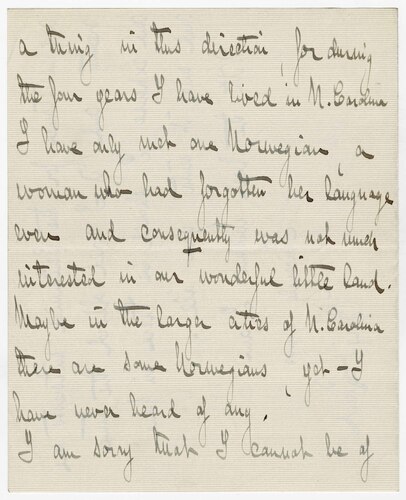 a thing in this direction, for during
the four years I have lived in N. Carolina
I have only met one Norwegian, a
woman who had forgotten her language
even and consequently was not much
interested in our wonderful little land.
Maybe in the larger cities of N. Carolina
there are some Norwegians, yet – I
have never heard of any.
I am sorry that I cannot be of